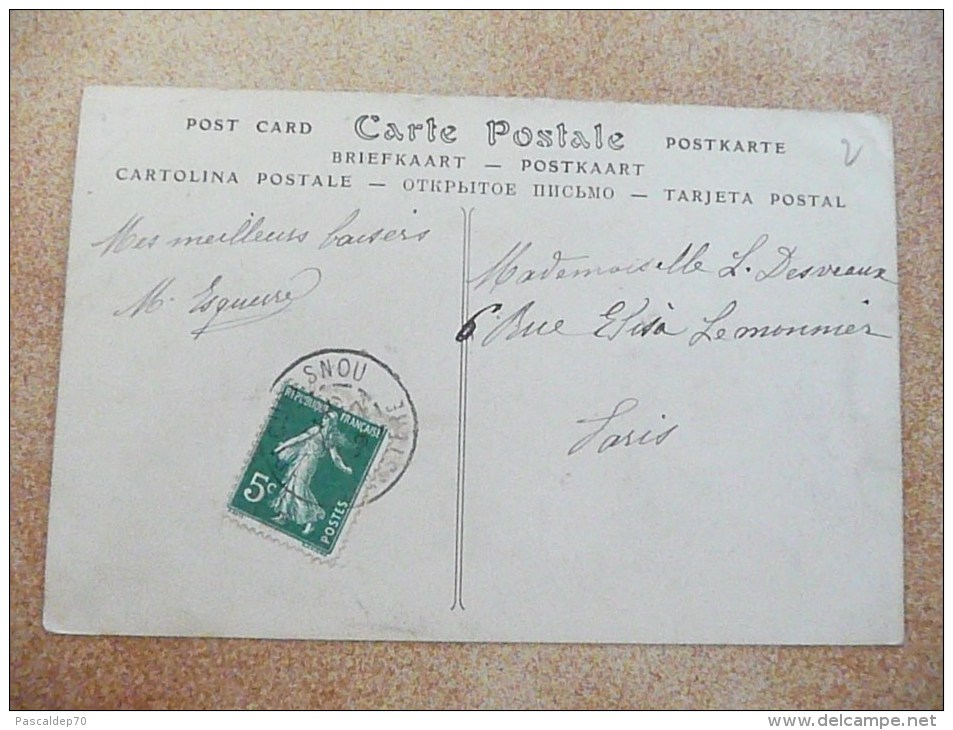 POST CARD Carte Postale POSTKARTE
BRIEFKAART — POSTKAART
CARTOLINA POSTALE — ОТКРЫТОЕ ПИСЬМО — TARJETA POSTAL
2
Mes meilleurs baisers
M. Esquerre
Mademoiselle L. Desveaux
6 Rue Elisa Lemonnier
Paris
SNOU
REPUBLIQUE FRANÇAISE
5c
POSTES
Pascaldep70
www.delcampe.net